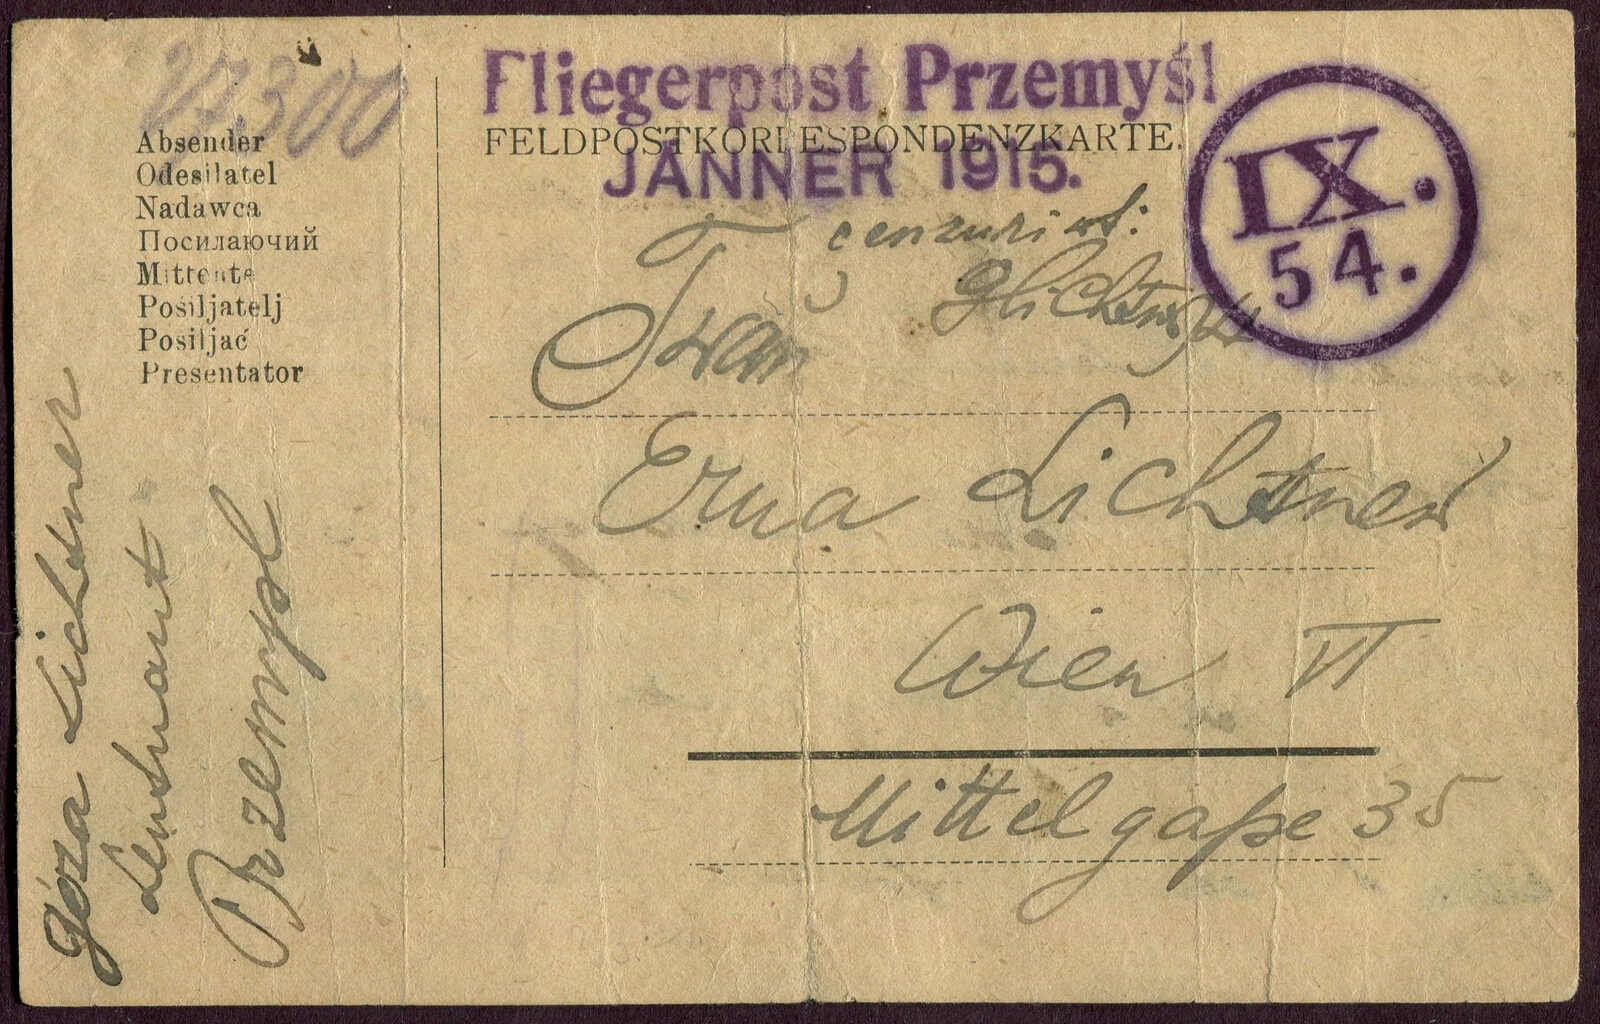 27.300
Absender
Odesilatel
Nadawca
Посилаючий
Mittente
Pošiljatelj
Posiljać
Presentator
Géza Lichtner
Leutnant
Przemysl
Fliegerpost Przemyśl
FELDPOSTKORRESPONDENZKARTE.
JÄNNER 1915.
IX.
54.
cenzuriert:
GLichtner
Frau
Erna Lichtner
Wien VI
Mittelgaße 35